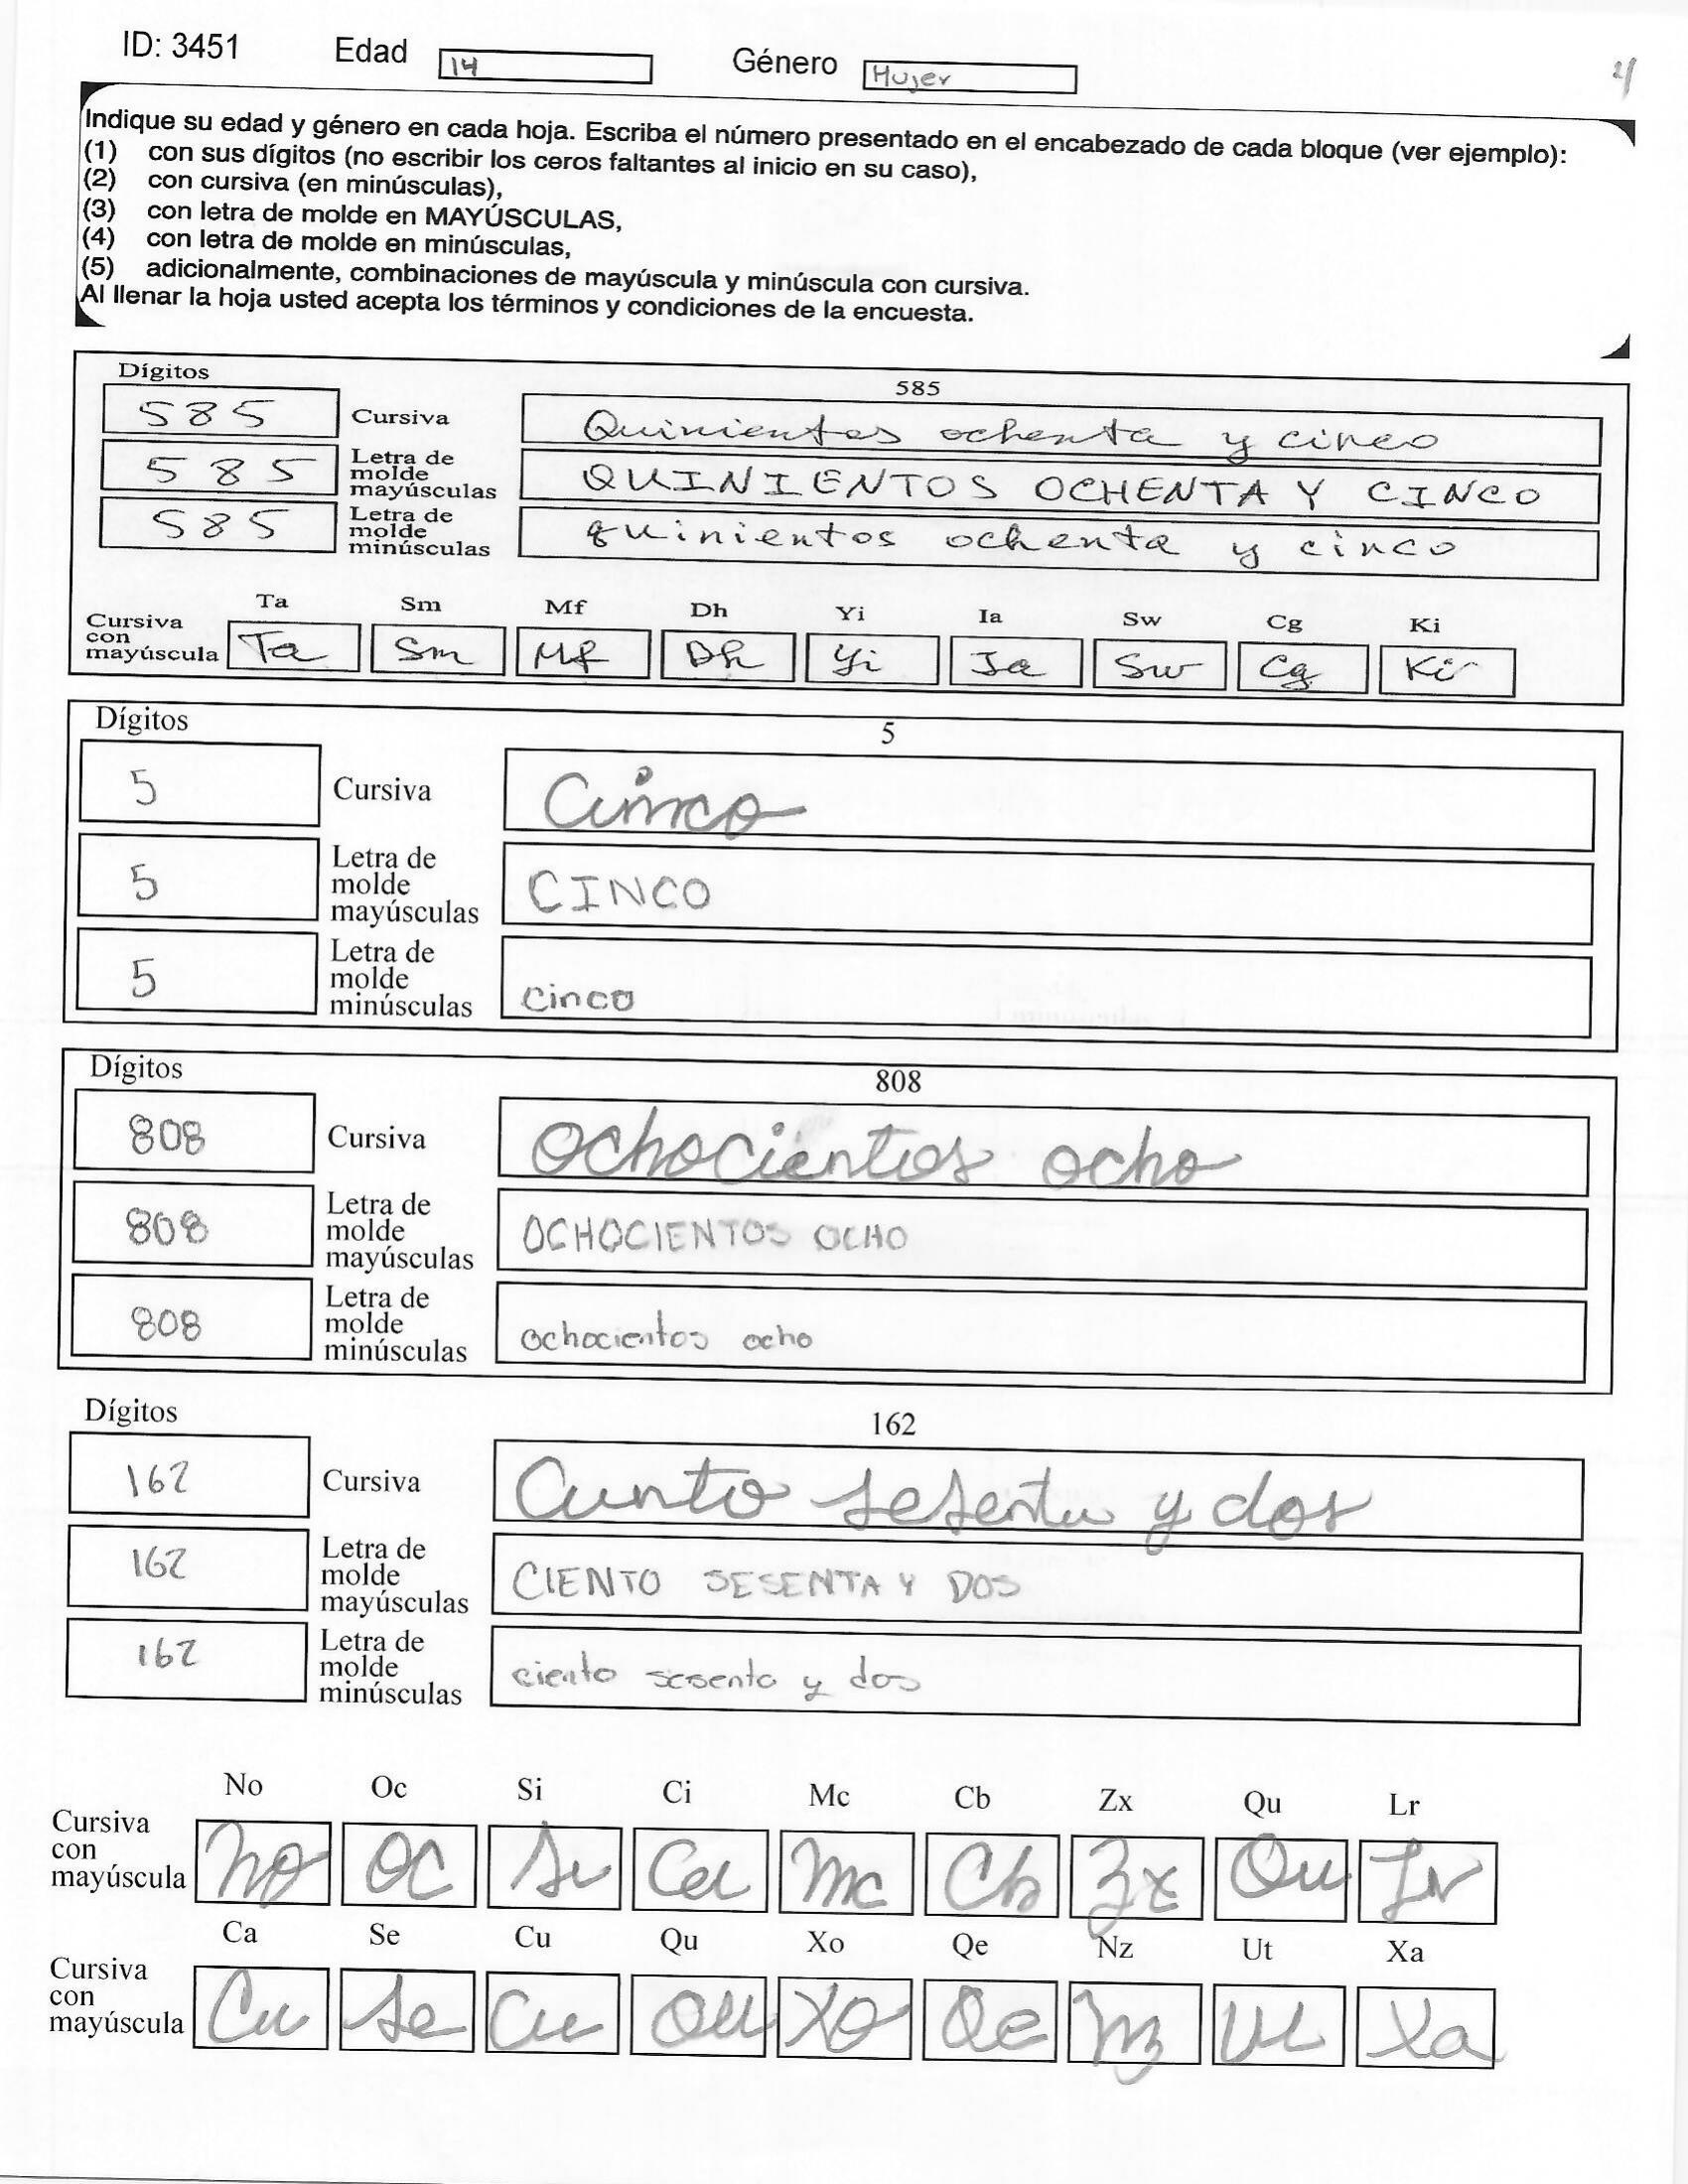 ID: 3451 Edad 14 Género Mujer
Indique su edad y género en cada hoja. Escriba el número presentado en el encabezado de cada bloque (ver ejemplo):
(1) con sus dígitos (no escribir los ceros faltantes al inicio en su caso),
(2) con cursiva (en minúsculas),
(3) con letra de molde en MAYÚSCULAS,
(4) con letra de molde en minúsculas,
(5) adicionalmente, combinaciones de mayúscula y minúscula con cursiva.
Al llenar la hoja usted acepta los términos y condiciones de la encuesta.
Dígitos 585
585 Cursiva Quinientos ochenta y cinco
585 Letra de molde mayúsculas QUINIENTOS OCHENTA Y CINCO
585 Letra de molde minúsculas quinientos ochenta y cinco
Ta Sm Mf Dh Yi Ia Sw Cg Ki
Cursiva con mayúscula Ta Sm Mf Dh Yi Ia Sw Cg Ki
Dígitos 5
5 Cursiva Cinco
5 Letra de molde mayúsculas CINCO
5 Letra de molde minúsculas cinco
Dígitos 808
808 Cursiva Ochocientos ocho
808 Letra de molde mayúsculas OCHOCIENTOS OCHO
808 Letra de molde minúsculas ochocientos ocho
Dígitos 162
162 Cursiva Ciento sesenta y dos
162 Letra de molde mayúsculas CIENTO SESENTA Y DOS
162 Letra de molde minúsculas ciento sesenta y dos
No Oc Si Ci Mc Cb Zx Qu Lr
Cursiva con mayúscula No Oc Si Ci Mc Cb Zx Qu Lr
Ca Se Cu Qu Xo Qe Nz Ut Xa
Cursiva con mayúscula Ca Se Cu Qu Xo Qe Nz Ut Xa